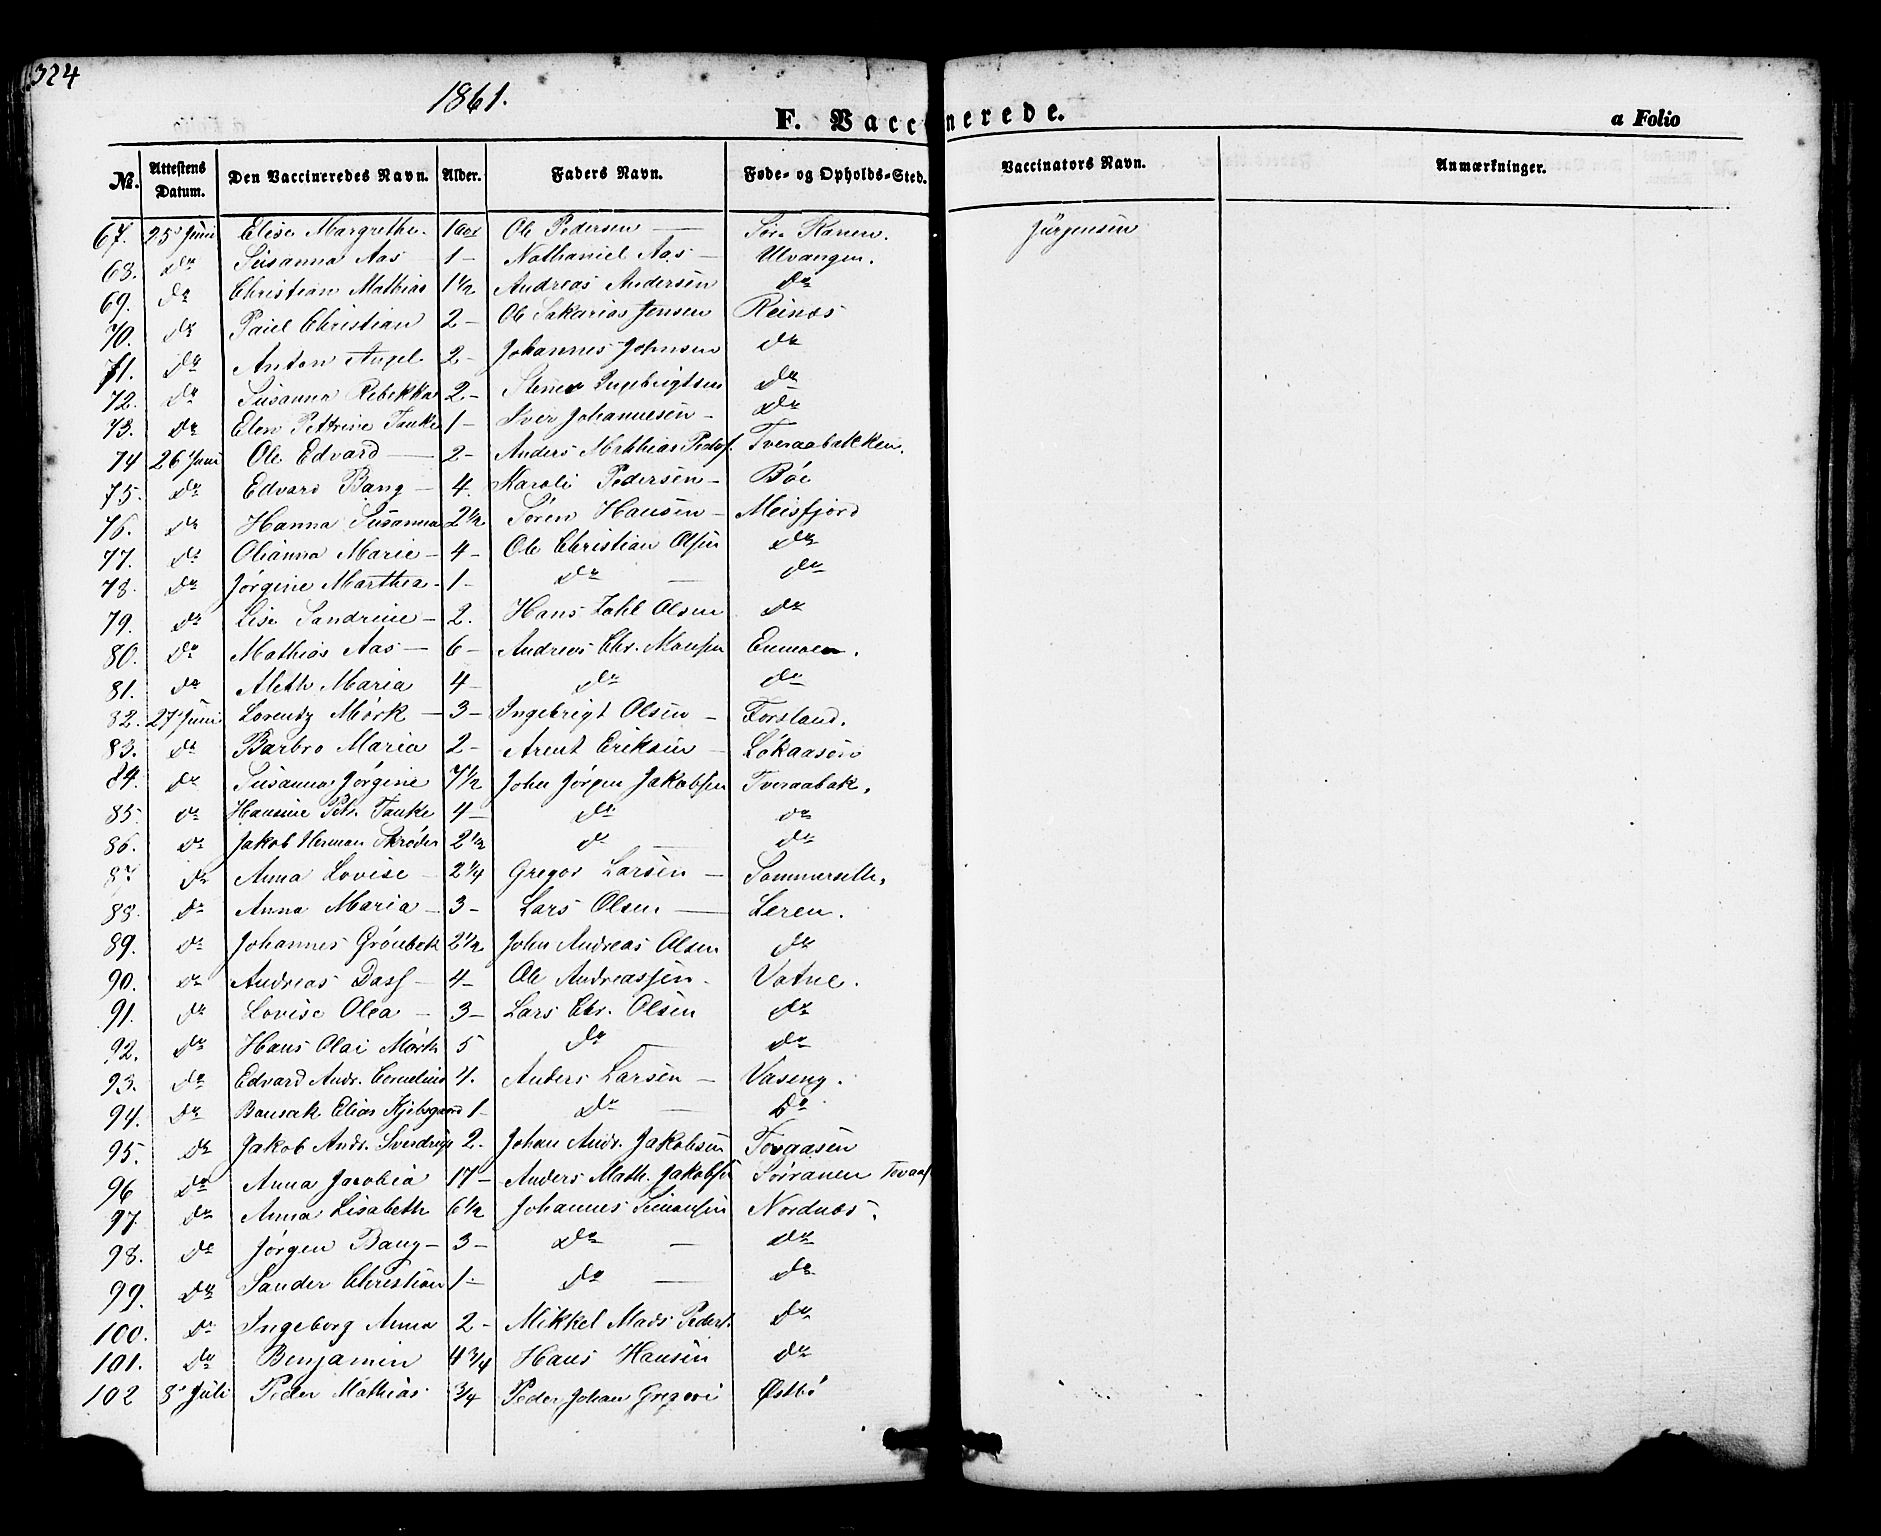 324
1861.
F. Vaccinerede.
a Folio
No. Attestens Datum. Den Vaccineredes Navn. Alder. Faders Navn. Føde- og Opholds-Sted. Vaccinators Navn. Anmærkninger.
67. 25 Juni Elise Margrethe 1 Ole Pedersen — Jürgensen
68. do Susanna Aas 1 – Nathaniel Aas – Ulvangen.
69. do Christian Mathias 1 1/2 Andreas Andersen do
70. do Christian 2 – Ole Sakarias Jensen Reinæs
71. do Anton Angel 2 – Johannes Johnsen do
72. do Susanna Rebekka 2 – Ingebrigtsen do
73. do Elen Pettrine Tanke 1 – Iver Johannesen – do
74 26 Juni Ole Edvard — 2 – Anders Mathias Peders. Tveraabakken.
75. do Edvard Bang – 4. Karoli Pedersen – Böe
76. do Hanna Susanna 2 1/2 Sören Hansen – Meisfjord
77. do Olianna Marie – 4 – Ole Christian Olsen do
78. do Jörgine Marthea – 1 – do — do
79. do Lise Sandrine – 2. Hans Zahl Olsen do
80. do Mathias Aas — 6 – Andreas Chr. Monsen
81. do Aleth Maria 4 – do do
82. 27 Juni Lorentz Mörk — 3 – Ingebrigt Olsen – Forsland.
83. do Barbro Maria 2 – Arent Eriksen – Lökaasen
84. do Susanna Jörgine 7 1/2 John Jörgen Jakobsen Tveraabak.
85. do Hansine Petr. Tanke 4 – do do
86. do Jakob Herman Skröder 2 1/2 do — do
87 do Anna Lovise – 2 1/4 Gregor Larsen – Sommerseth.
88. do Anna Maria – 3 – Lars Olsen — Leren.
89. do Johannes Grönbek 2 1/2 John Andreas Olsen do
90. do Andreas Dass – 4 – Ole Andreassen – Vatne.
91. do Lovise Olea – 3 – Lars Chr. Olsen do
92. do Hans Olai Mörk 5 do — do
93. do Edvard Andr. Cornelius 4. Anders Larsen – Vaseng.
94. do Elias 1 – do — Do
95. do Jakob Andr. Sverdrup 2. Johan Andr. Jakobsen Tovaasen
96 do Anna Jacobia 17 – Anders Math. Jakobsen Sörranen
97. do Anna Lisabeth 6 1/2 Johannes Simonsen Nordnæs.
98. do Jörgen Bang – 3 – do — do
99. do Sander Christian 1 – do — do
100. do Ingeborg Anna 2 – Mikkel Mads Peders. do
101. do Benjamin 4 3/4 Hans Hansen do
102 3 Juli Peder Mathias 3/4 Peder Johan Gregori Østbö